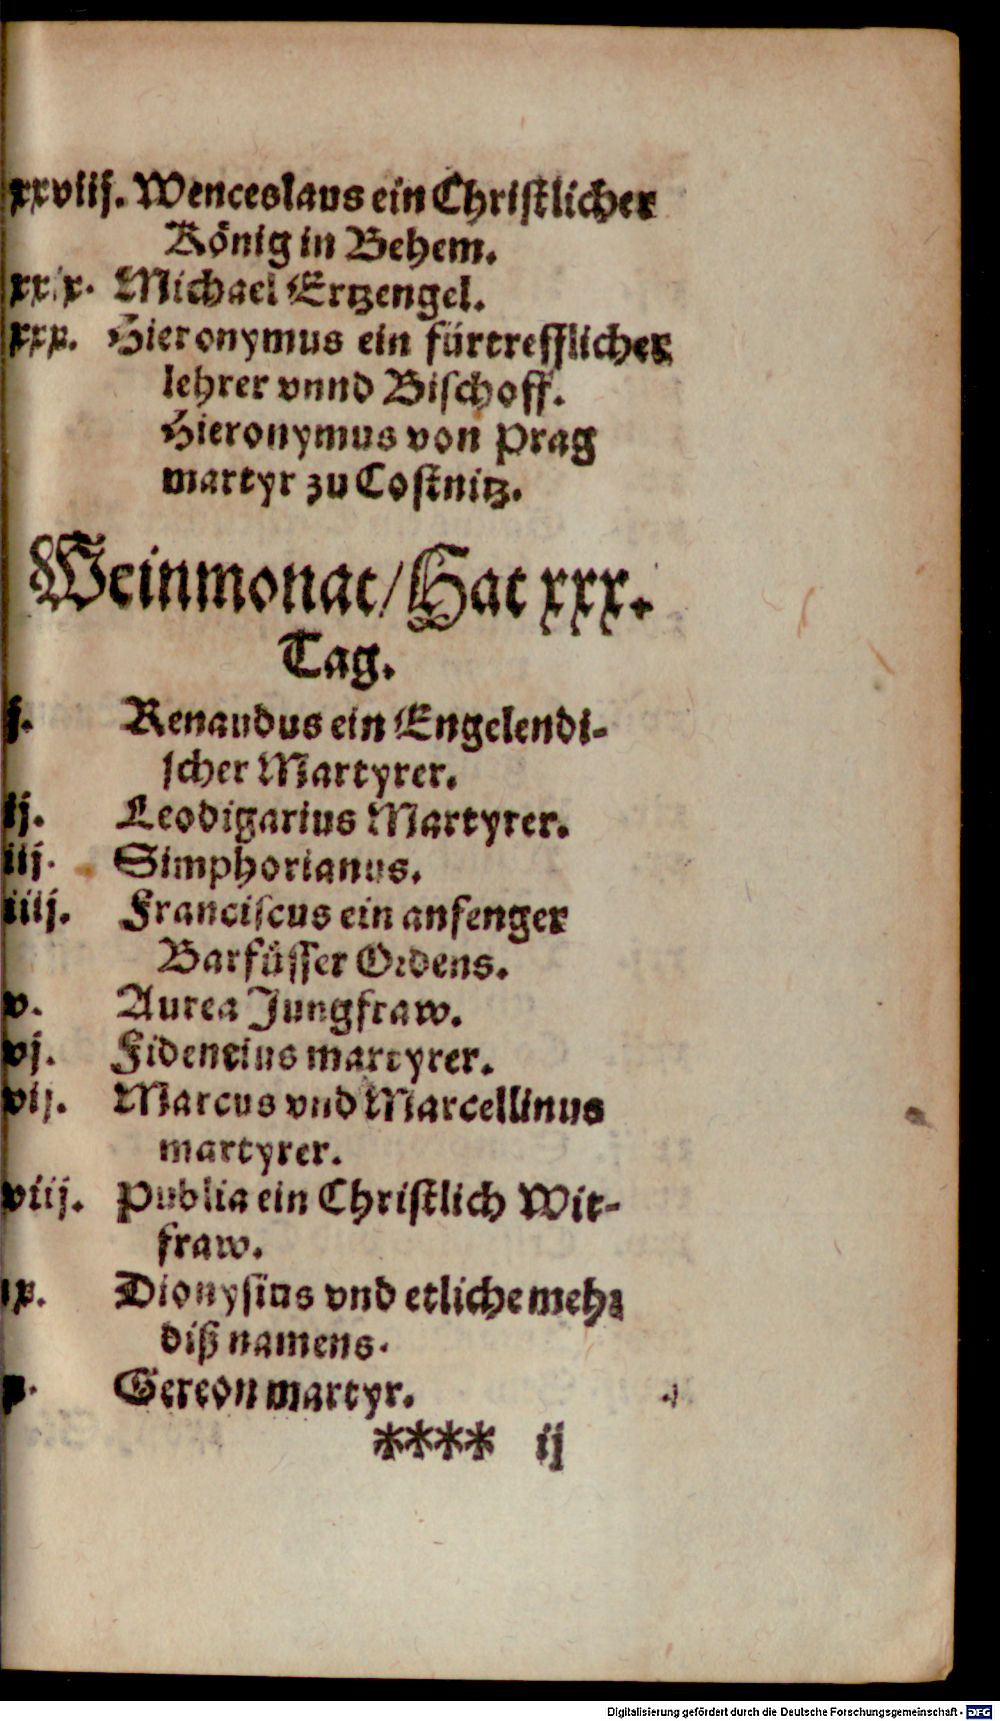 xxviij. Wenceslaus ein Christlicher
König in Behem.
xxix. Michael Ertzengel.
xxx. Hieronymus ein fürtrefflicher
lehrer vnnd Bischoff.
Hieronymus von Prag
martyr zu Costnitz.
Weinmonat / Hat xxx.
Tag.
j. Renaudus ein Engelendi-
scher Martyrer.
ij. Leodigarius Martyrer.
iij. Simphorianus.
iiij. Franciscus ein anfenger
Barfüsser Ordens.
v. Aurea Jungfraw.
vj. Fidencius martyrer.
vij. Marcus vnd Marcellinus
martyrer.
viij. Publia ein Christlich Wit-
fraw.
ix. Dionysius vnd etliche mehr
diß namens.
x. Gereon martyr.
**** ij
Digitalisierung gefördert durch die Deutsche Forschungsgemeinschaft - DFG